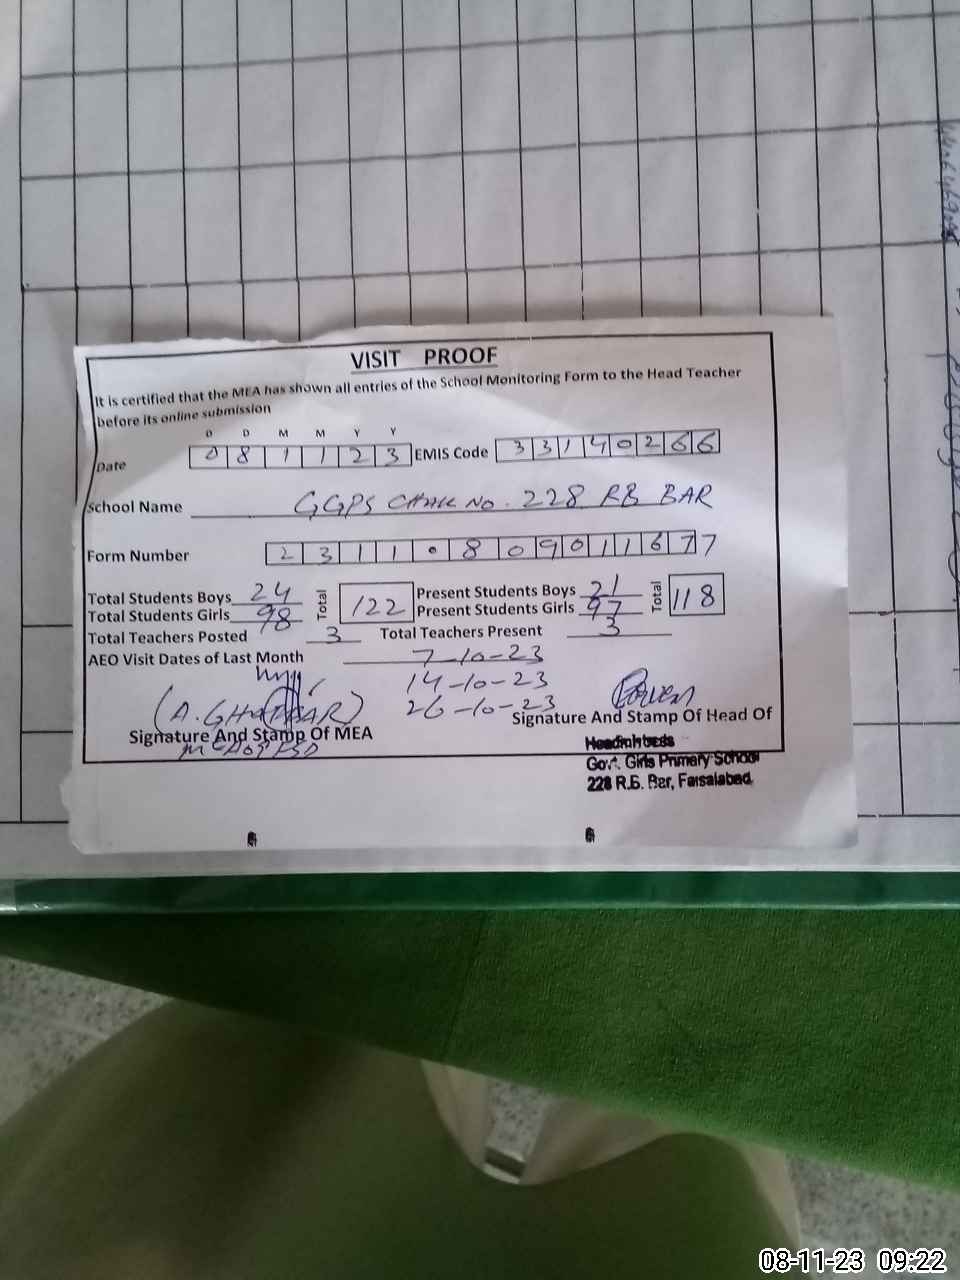 VISIT PROOF
It is certified that the MEA has shown all entries of the School Monitoring Form to the Head Teacher
before its online submission
D D M M Y Y
Date 0 8 1 1 2 3 EMIS Code 3 3 1 4 0 2 6 6
School Name GGPS CHAK NO. 228 RB BAR
Form Number 2 3 1 1 0 8 0 9 0 1 1 6 7 7
Total Students Boys 24 Total 122 Present Students Boys 21 Total 118
Total Students Girls 98 Present Students Girls 97
Total Teachers Posted 3 Total Teachers Present 3
AEO Visit Dates of Last Month 7-10-23
14-10-23
26-10-23
(A. GHAFFAR)
Signature And Stamp Of MEA
Signature And Stamp Of Head Of
Headmistress
Govt. Girls Primary School
228 R.B. Bar, Faisalabad.
08-11-23 09:22